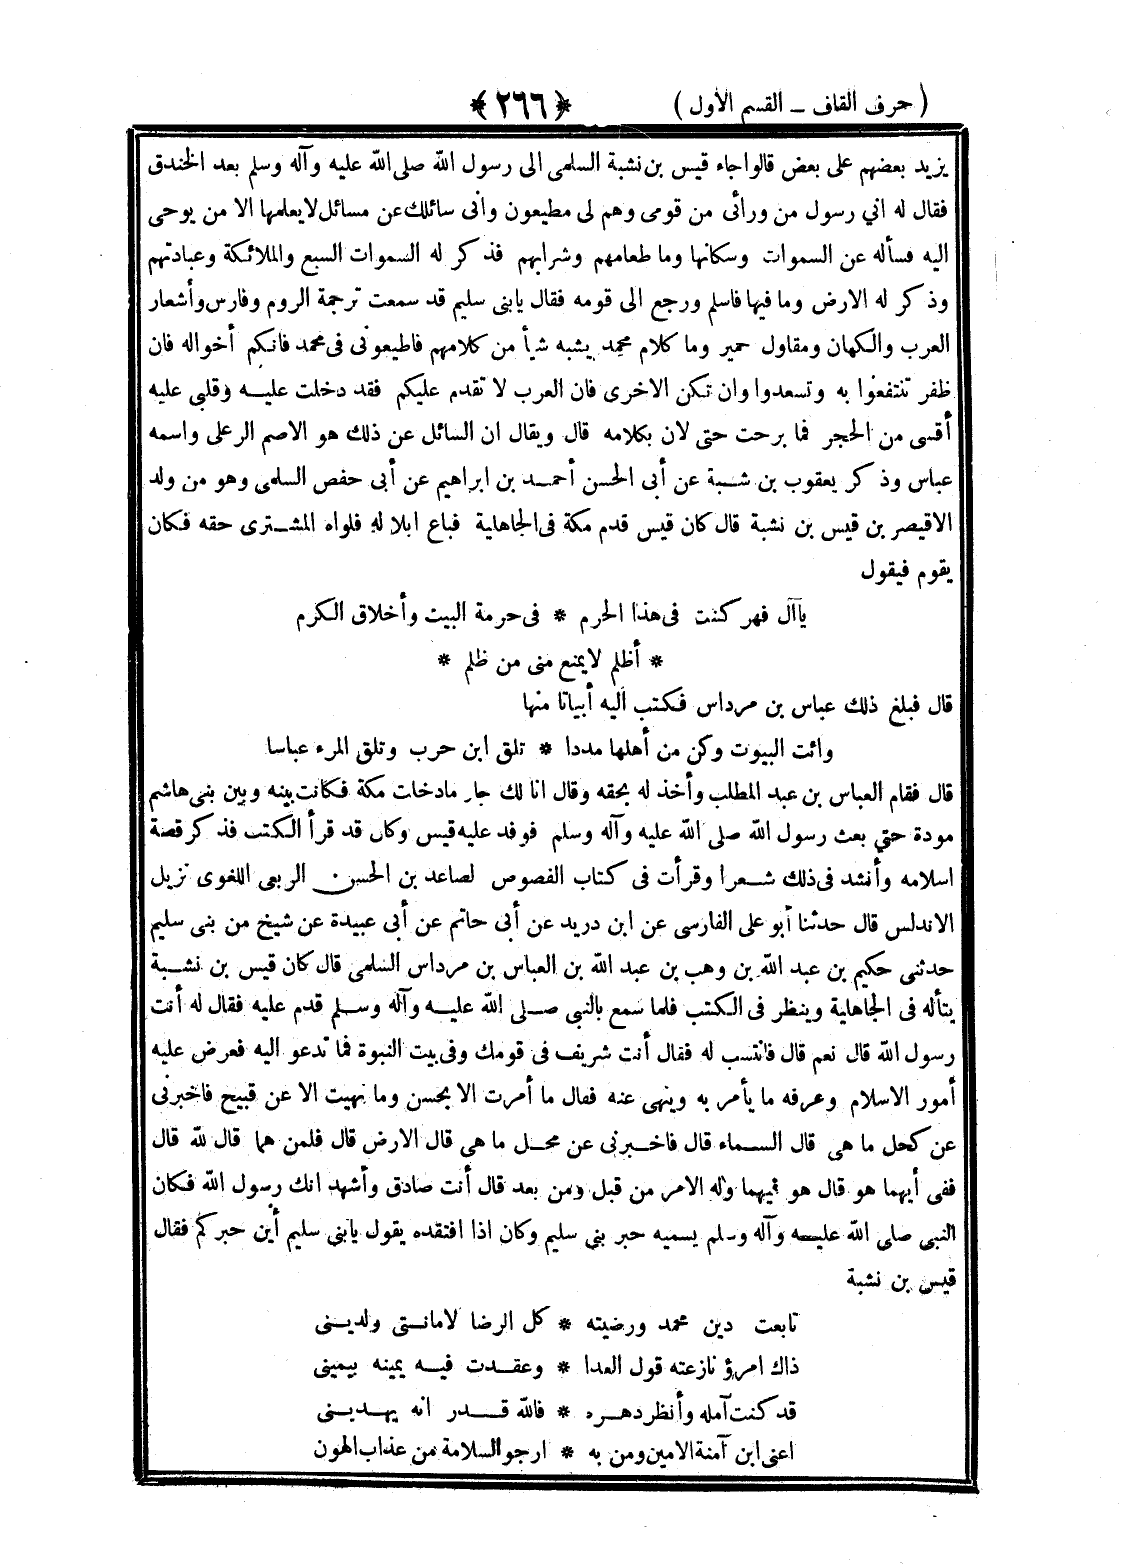 ( حرف القاف – القسم الأول ) ﴿ ٢٦٦ ﴾
يزيد بعضهم على بعض قالوا جاء قيس بن نشبة السلمى الى رسول الله صلى الله عليه وآله وسلم بعد الخندق
فقال له اني رسول من ورائى من قومى وهم لى مطيعون وانى سائلك عن مسائل لايعلمها الا من يوحى
اليه فسأله عن السموات وسكانها وما طعامهم وشرابهم فذكر له السموات السبع والملائكة وعبادتهم
وذكر له الارض وما فيها فاسلم ورجع الى قومه فقال يابنى سليم قد سمعت ترجمة الروم وفارس وأشعار
العرب والكهان ومقاول حمير وما كلام محمد يشبه شيأ من كلامهم فاطيعونى فى محمد فانكم أخواله فان
ظفر تنتفعوا به وتسعدوا وان تكن الاخرى فان العرب لا تقدم عليكم فقد دخلت عليه وقلبى عليه
أقسى من الحجر فما برحت حتى لان بكلامه قال ويقال ان السائل عن ذلك هو الاصم الرعلى واسمه
عباس وذكر يعقوب بن شبة عن أبى الحسن أحمد بن ابراهيم عن أبى حفص السلمى وهو من ولد
الاقيصر بن قيس بن نشبة قال كان قيس قدم مكة فى الجاهلية فباع ابلا له فلواه المشترى حقه فكان
يقوم فيقول
ياآل فهر كنت فى هذا الحرم * فى حرمة البيت وأخلاق الكرم
* أظلم لايمنع منى من ظلم *
قال فبلغ ذلك عباس بن مرداس فكتب اليه أبياتا منها
وائت البيوت وكن من أهلها مددا * تلق ابن حرب وتلق المرء عباسا
قال فقام العباس بن عبد المطلب وأخذ له بحقه وقال انا لك جار مادخلت مكة فكانت بينه وبين بنى هاشم
مودة حتي بعث رسول الله صلى الله عليه وآله وسلم فوفد عليه قيس وكان قد قرأ الكتب فذكر قصة
اسلامه وأنشد فى ذلك شعرا وقرأت فى كتاب الفصوص لصاعد بن الحسن الربعى اللغوى نزيل
الاندلس قال حدثنا أبو على الفارسى عن ابن دريد عن أبى حاتم عن أبى عبيدة عن شيخ من بنى سليم
حدثنى حكيم بن عبد الله بن وهب بن عبد الله بن العباس بن مرداس السلمى قال كان قيس بن نشبة
يتأله فى الجاهلية وينظر فى الكتب فلما سمع بالنبى صلى الله عليه وآله وسلم قدم عليه فقال له أنت
رسول الله قال نعم قال فانتسب له فقال أنت شريف فى قومك وفى بيت النبوة فما تدعو اليه فعرض عليه
أمور الاسلام وعرفه ما يأمر به وينهى عنه فقال ما أمرت الا بحسن وما نهيت الا عن قبيح فاخبرنى
عن كحل ما هى قال السماء قال فاخبرنى عن محل ما هى قال الارض قال فلمن هما قال لله قال
ففى أيهما هو قال هو فيهما وله الامر من قبل ومن بعد قال أنت صادق وأشهد انك رسول الله فكان
النبى صلى الله عليه وآله وسلم يسميه حبر بني سليم وكان اذا افتقده يقول يابنى سليم أين حبركم فقال
قيس بن نشبة
تابعت دين محمد ورضيته * كل الرضا لامانتى ولدينى
ذاك امرؤ نازعته قول العدا * وعقدت فيه يمينه بيمينى
قد كنت آمله وأنظر دهره * فالله قدر انه يهدينى
اعنى ابن آمنة الامين ومن به * ارجو السلامة من عذاب الهون